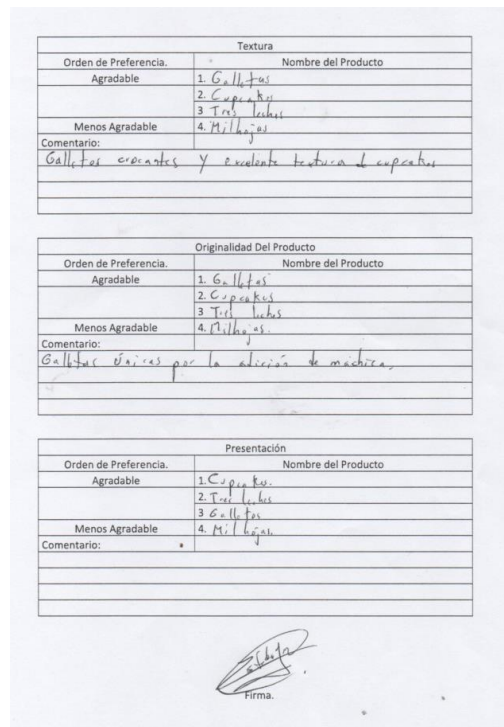 Textura
Orden de Preferencia. Nombre del Producto
Agradable 1. Galletas
2. Cupcakes
3 Tres leches
Menos Agradable 4. Milhojas
Comentario:
Galletas crocantes y excelente textura d cupcakes
Originalidad Del Producto
Orden de Preferencia. Nombre del Producto
Agradable 1. Galletas
2. Cupcakes
3 Tres leches
Menos Agradable 4. Milhojas.
Comentario:
Galletas únicas por la adición de máchica.
Presentación
Orden de Preferencia. Nombre del Producto
Agradable 1. Cupcakes.
2. Tres leches
3 Galletas
Menos Agradable 4. Milhojas.
Comentario:
Firma.